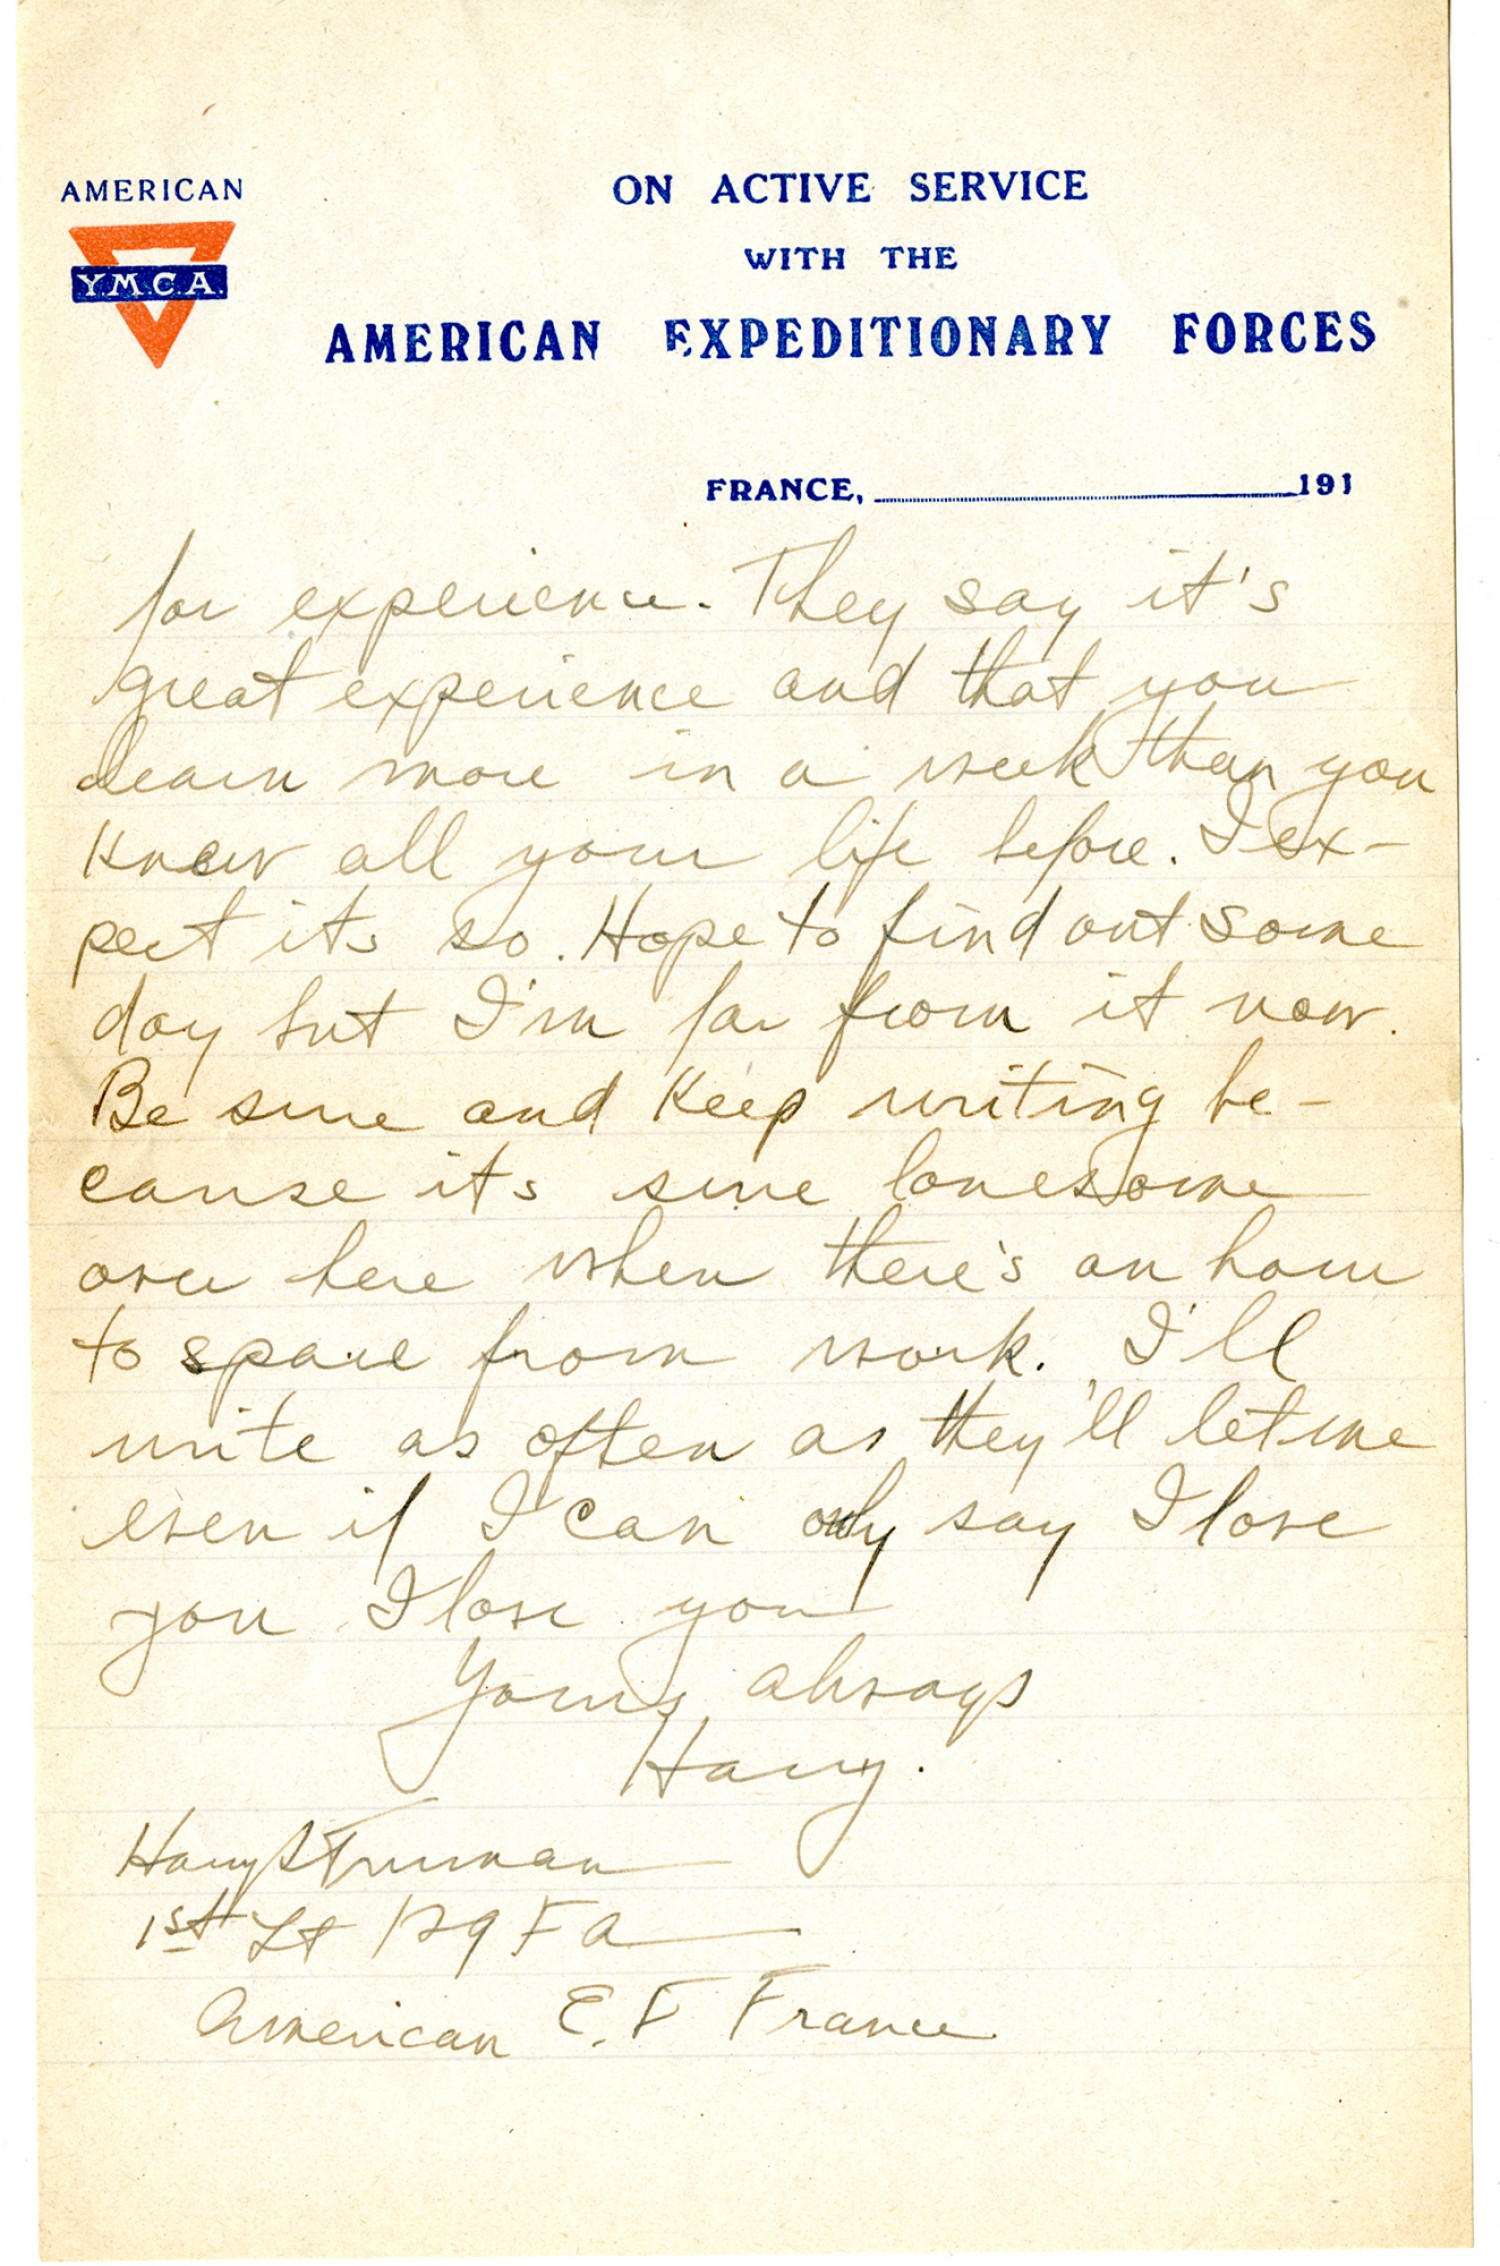 AMERICAN
YM.C.A.
ON ACTIVE SERVICE
WITH THE
AMERICAN EXPEDITIONARY FORCES
FRANCE, 191
for experience. They say it's
great experience and that you
learn more in a week than you
knew all your life before. I ex-
pect its so. Hope to find out some
day but I'm far from it now.
Be sure and keep writing be-
cause its sure lonesome
over here when there's an hour
to spare from work. I'll
write as often as they'll let me
even if I can only say I love
you I love you
Yours always
Harry.
Harry S Truman
1st Lt 129 F A
American E. F France